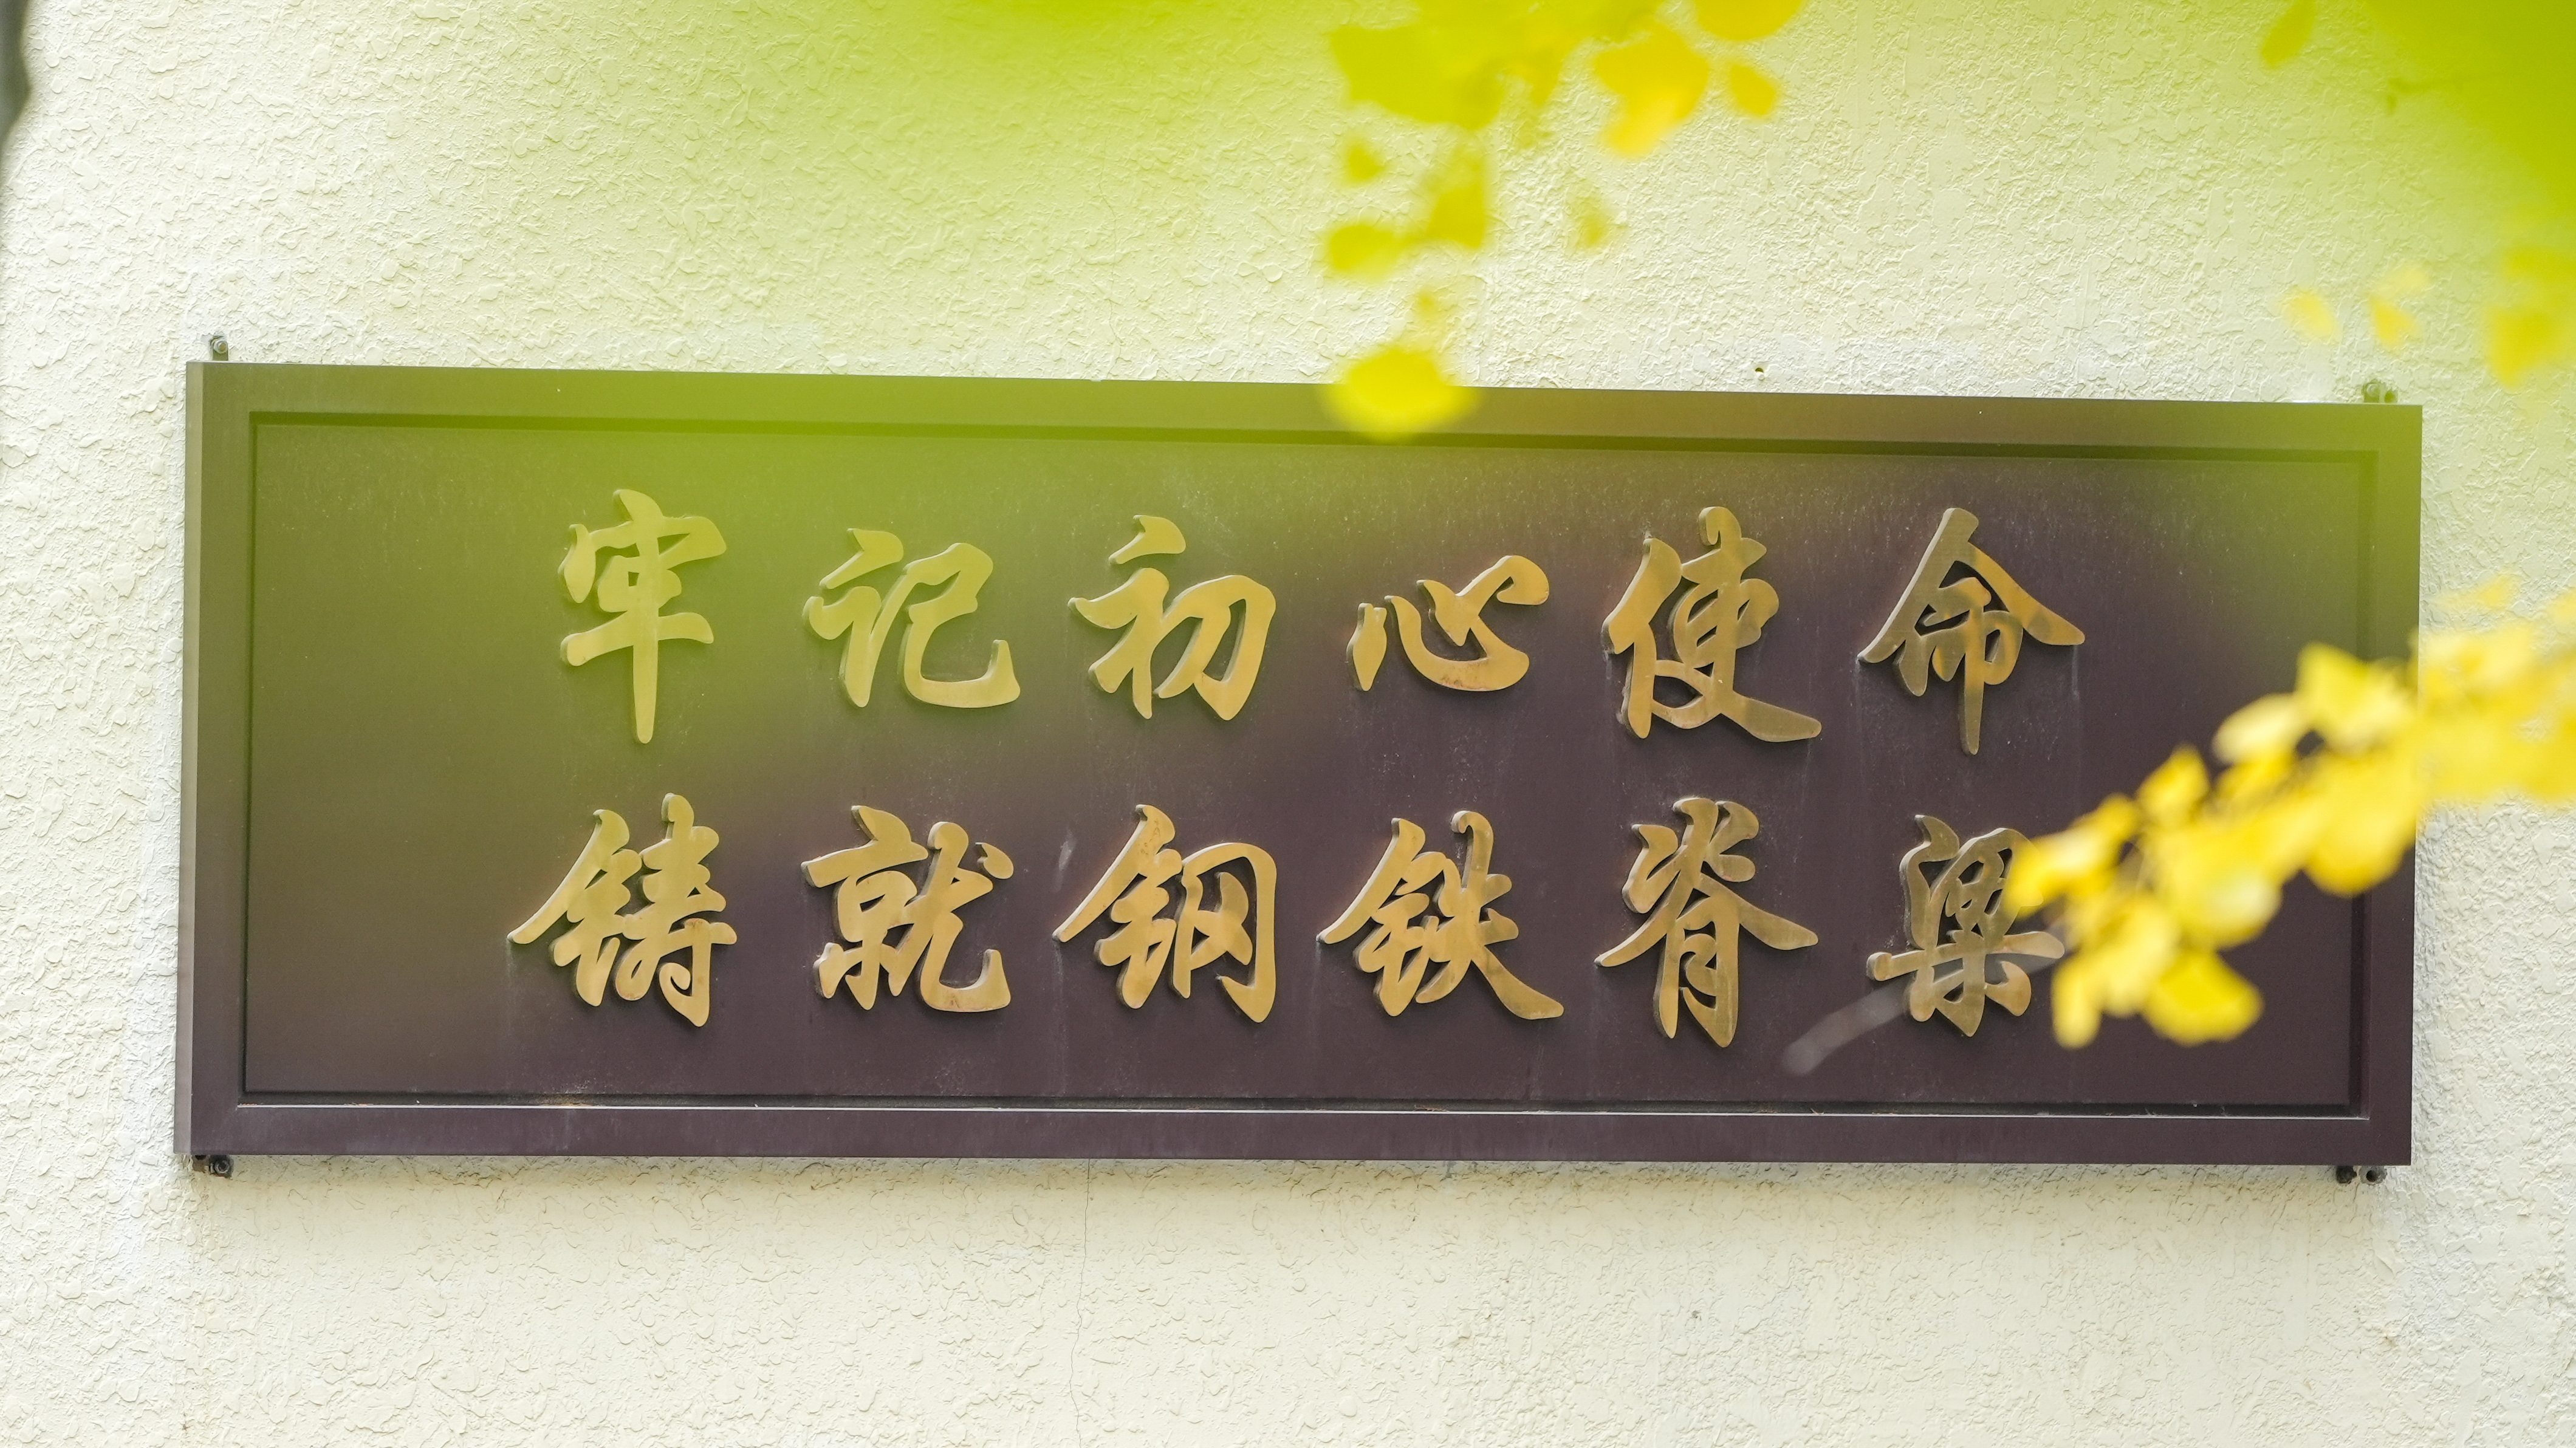 牢记初心使命
铸就钢铁脊梁